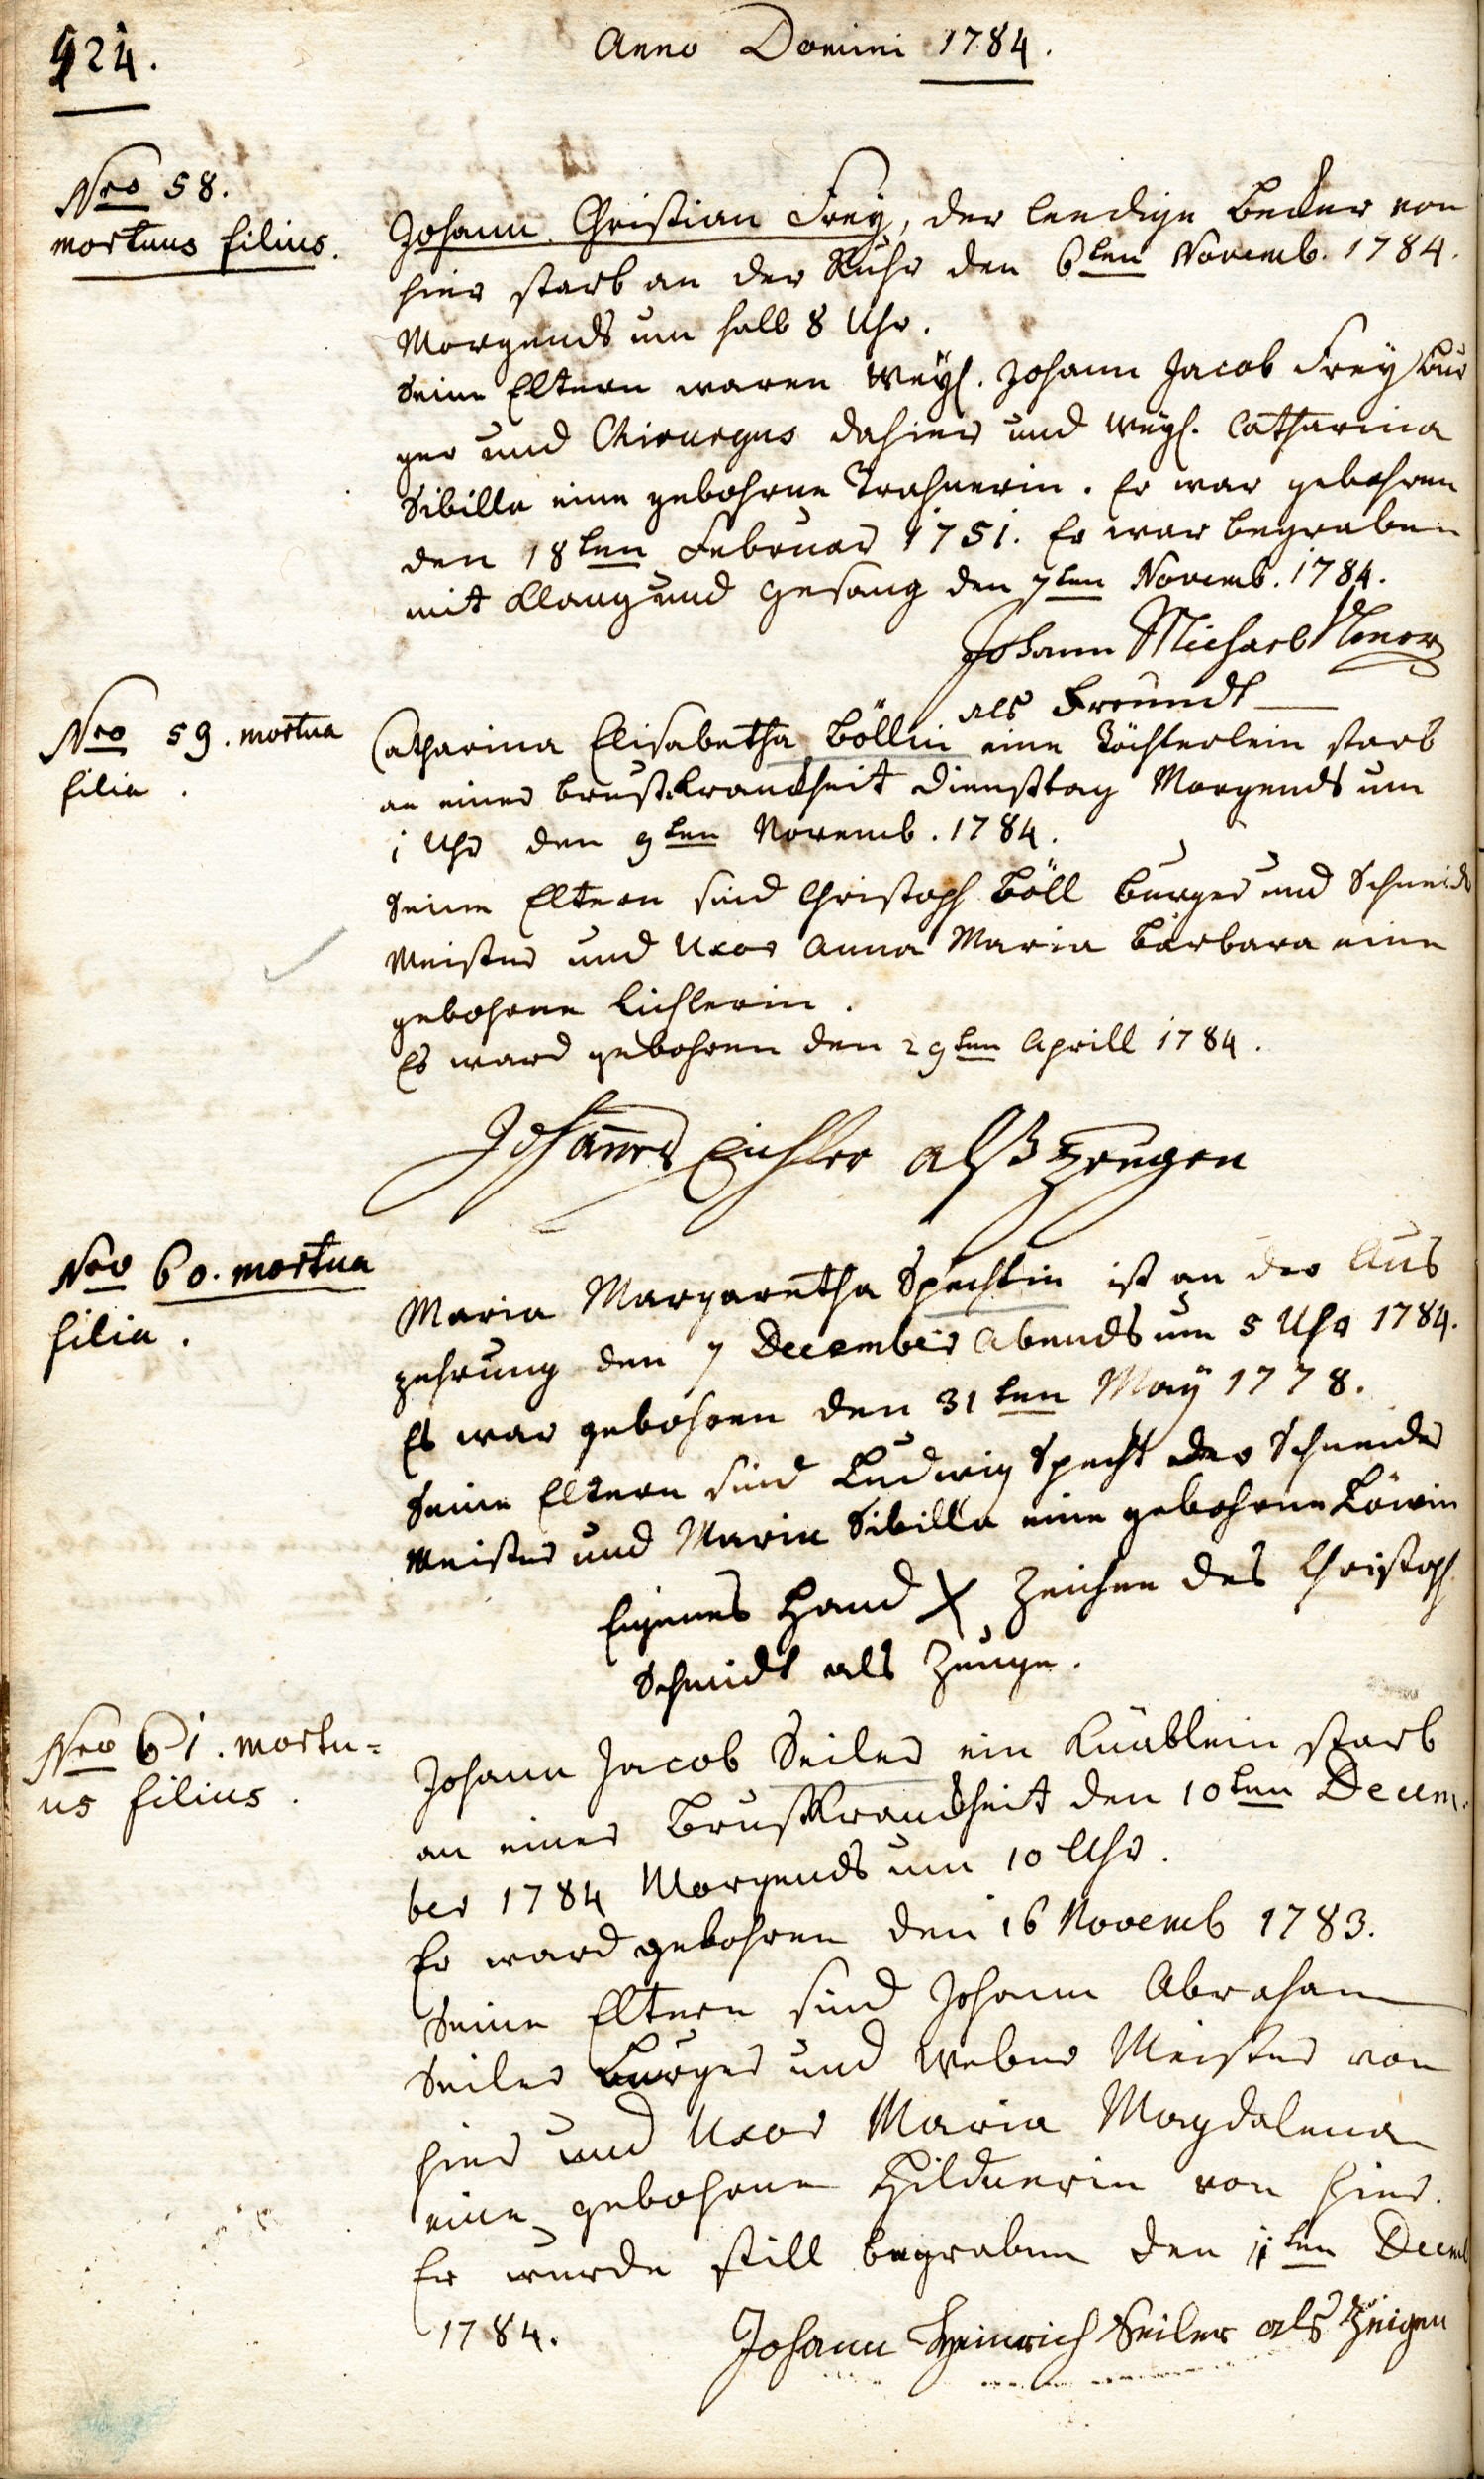 424.
Anno Domini 1784.
Nro 58.
mortuus filius.
Johann Christian Frey, der leedige Becker von
hier starb an der Ruhr den 6ten Novemb. 1784.
Morgends um halb 8 Uhr.
Seine Eltern waren Weyl. Johann Jacob Frey Bur
ger und Chirurgus dahier und weyl. Catharina
Sibilla eine gebohrne Trahnerin. Er war gebohren
den 18ten Februar 1751. Er war begraben
mit Klang und Gesang den 7ten Novemb. 1784.
Johann Michael
als Freundt
Nro 59. mortua
filia.
Catharina Elisabetha Böllin eine Töchterlein starb
an einer Brustkranckheit Diensttag Morgends um
1 Uhr den 9ten Novemb. 1784.
Seine Eltern sind Christoph Böll Burger und Schneider
Meister und Uxor Anna Maria Barbara eine
gebohrne Eichlerin.
Es ward gebohren den 29ten Aprill 1784.
Johannes Eichler alß Zeugen
Nro 60. mortua
filia.
Maria Margaretha Spechtin ist an der Aus
zehrung den 7 December Abends um 5 Uhr 1784.
Es war gebohren den 31ten May 1778.
Seine Eltern sind Ludwig Specht der Schneider
Meister und Maria Sibilla eine gebohrne Löwin
Eigenes Hand X Zeichen des Christoph
Schmidt als Zeuge.
Nro 61. mortu=
us filius.
Johann Jacob Seiler ein Knäblein starb
an einer Brustkranckheit den 10ten Decem
ber 1784 Morgends um 10 Uhr.
Er ward gebohren den 16 Novemb 1783.
Seine Eltern sind Johann Abraham
Seiler Burger und Weber Meister von
hier und Uxor Maria Magdalena
eine gebohrne Hildnerin von hier.
Er wurde still begraben den 11ten Decemb
1784.
Johann Heinrich Seiler als Zeigen